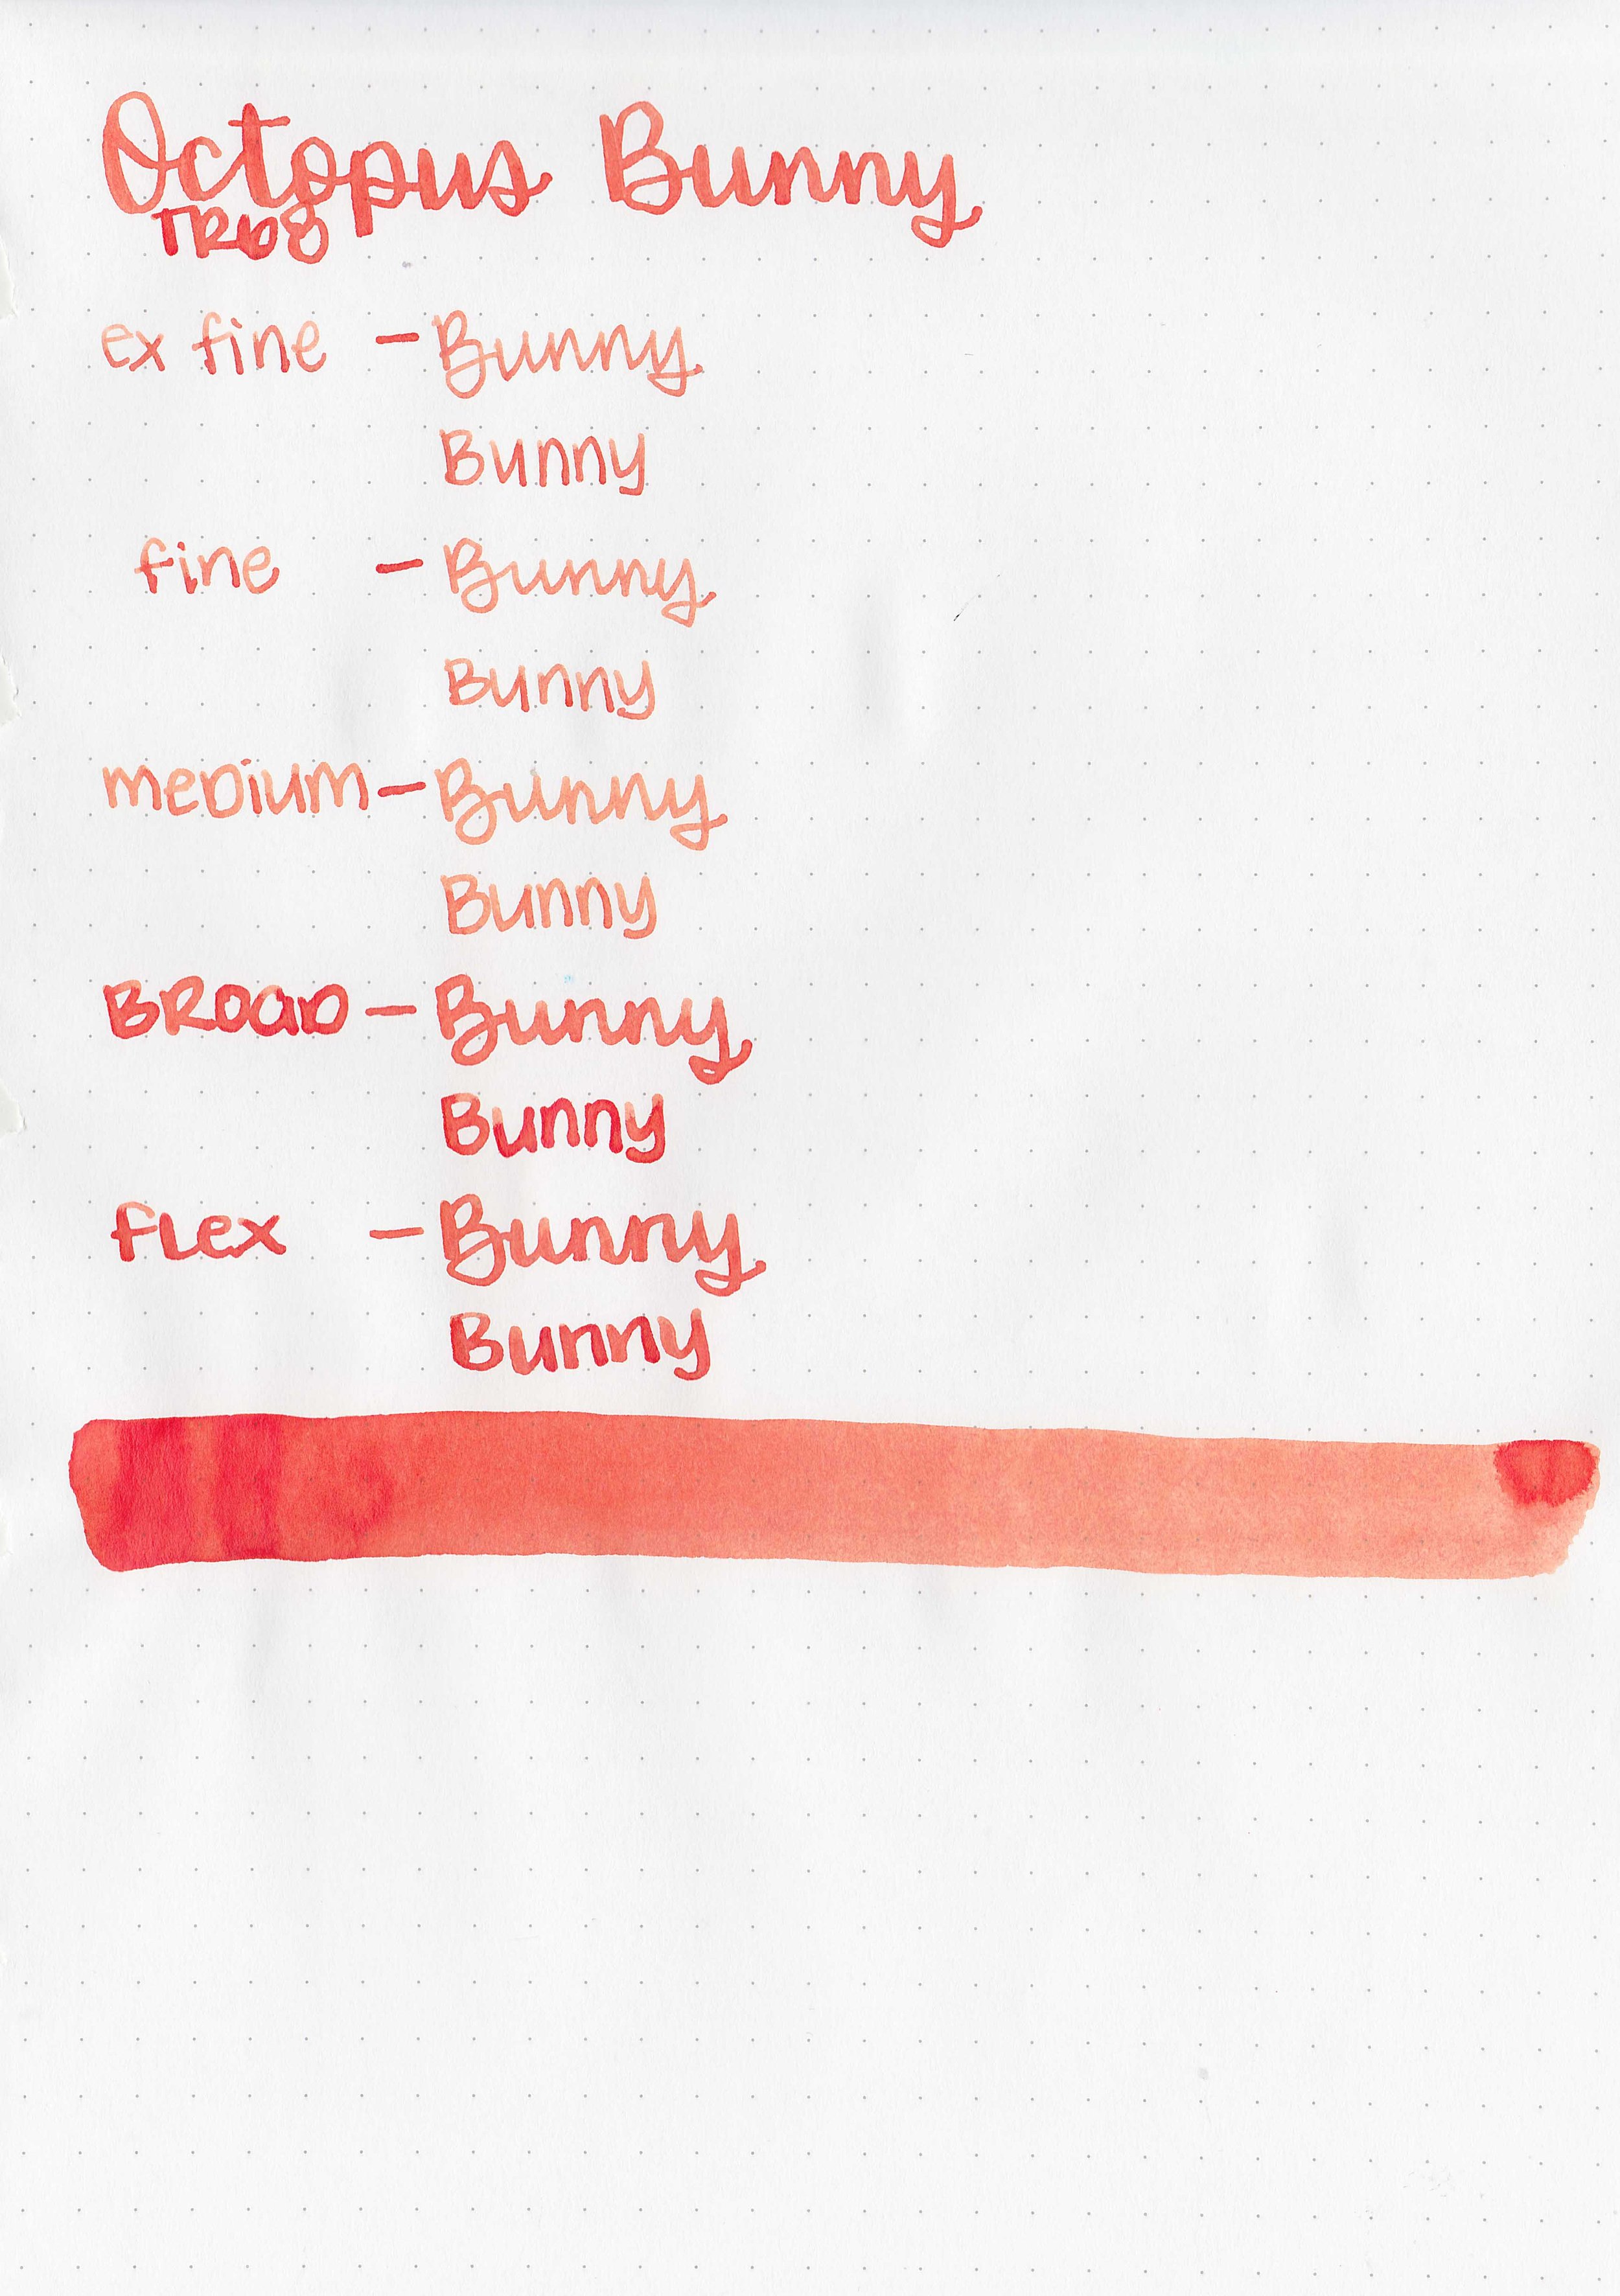 Octopus Bunny
TR68
ex fine - Bunny
Bunny
fine - Bunny
Bunny
meDium - Bunny
Bunny
BROaD - Bunny
Bunny
fLex - Bunny
Bunny